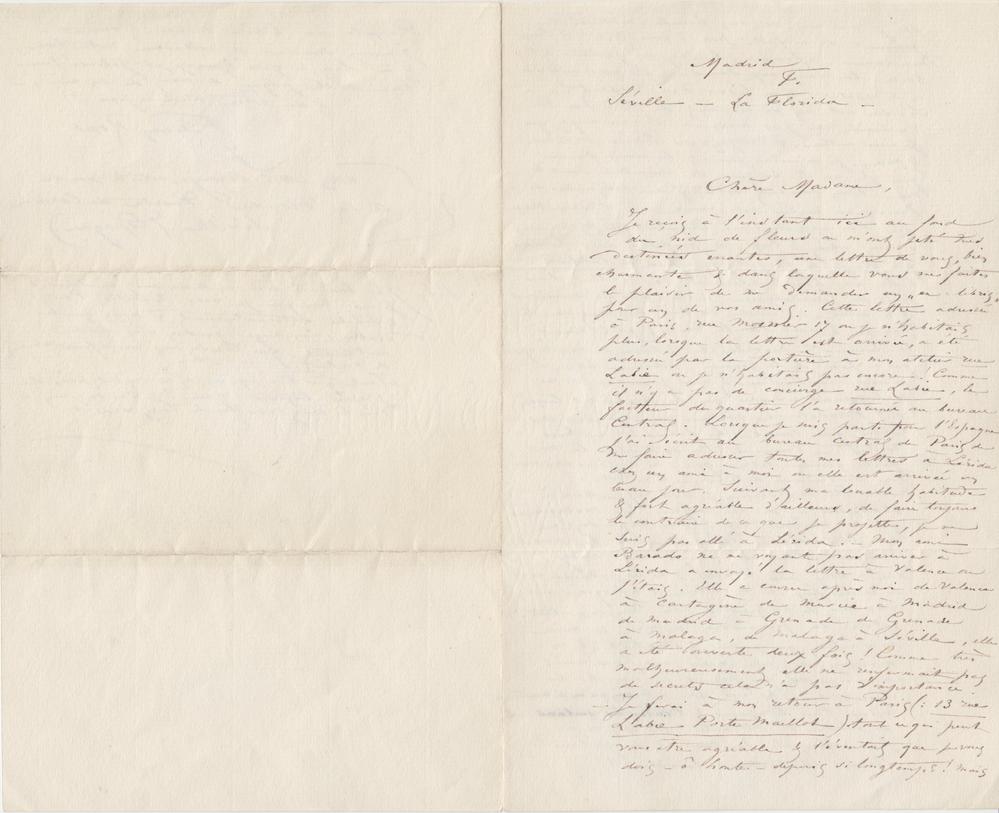 Madrid
F.
Séville — La Florida —
Chère Madame,
Je reçois à l'instant ici au fond
du nid de fleurs où m'ont jeté mes
destinées errantes, une lettre de vous, bien
charmante & dans laquelle vous me faites
le plaisir de me demander un
pour un de vos amis. Cette lettre adressée
à Paris, rue Mosnier 17 où je n'habitais
plus, lorsque la lettre est arrivée, a été
adressée par la portière à mon atelier rue
Labie où je n'habitais pas encore! Comme
il n'y a pas de concierge rue Labie, le
facteur du quartier l'a retournée au bureau
Central. Lorsque je suis parti pour l'Espagne
j'ai écrit au bureau central de Paris de
me faire adresser toutes mes lettres à Lérida
chez un ami à moi où elle est arrivée un
beau jour. Suivant ma louable habitude
& fort agréable d'ailleurs, de faire toujours
le contraire de ce que je projette, je ne
suis pas allé à Lérida. — Mon ami
Barado ne me voyant pas arriver à
Lérida a envoyé la lettre à Valence où
j'étais. Elle a couru après moi de Valence
à Cartagène de Murcie à Madrid
de Madrid à Grenade de Grenade
à Malaga, de Malaga à Séville, elle
a été ouverte deux fois! Comme très
malheureusement elle ne renfermait pas
de secrets cela n'a pas d'importance.
— Je ferai à mon retour à Paris (: 13 rue
Labie Porte Maillot) tout ce qui peut
vous être agréable & l'éventail que je vous
dois — ô honte — depuis si longtemps! Mais